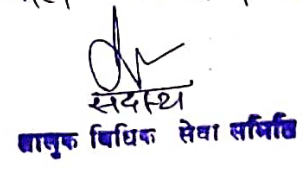 सदस्य
तालुक विधिक सेवा समिति